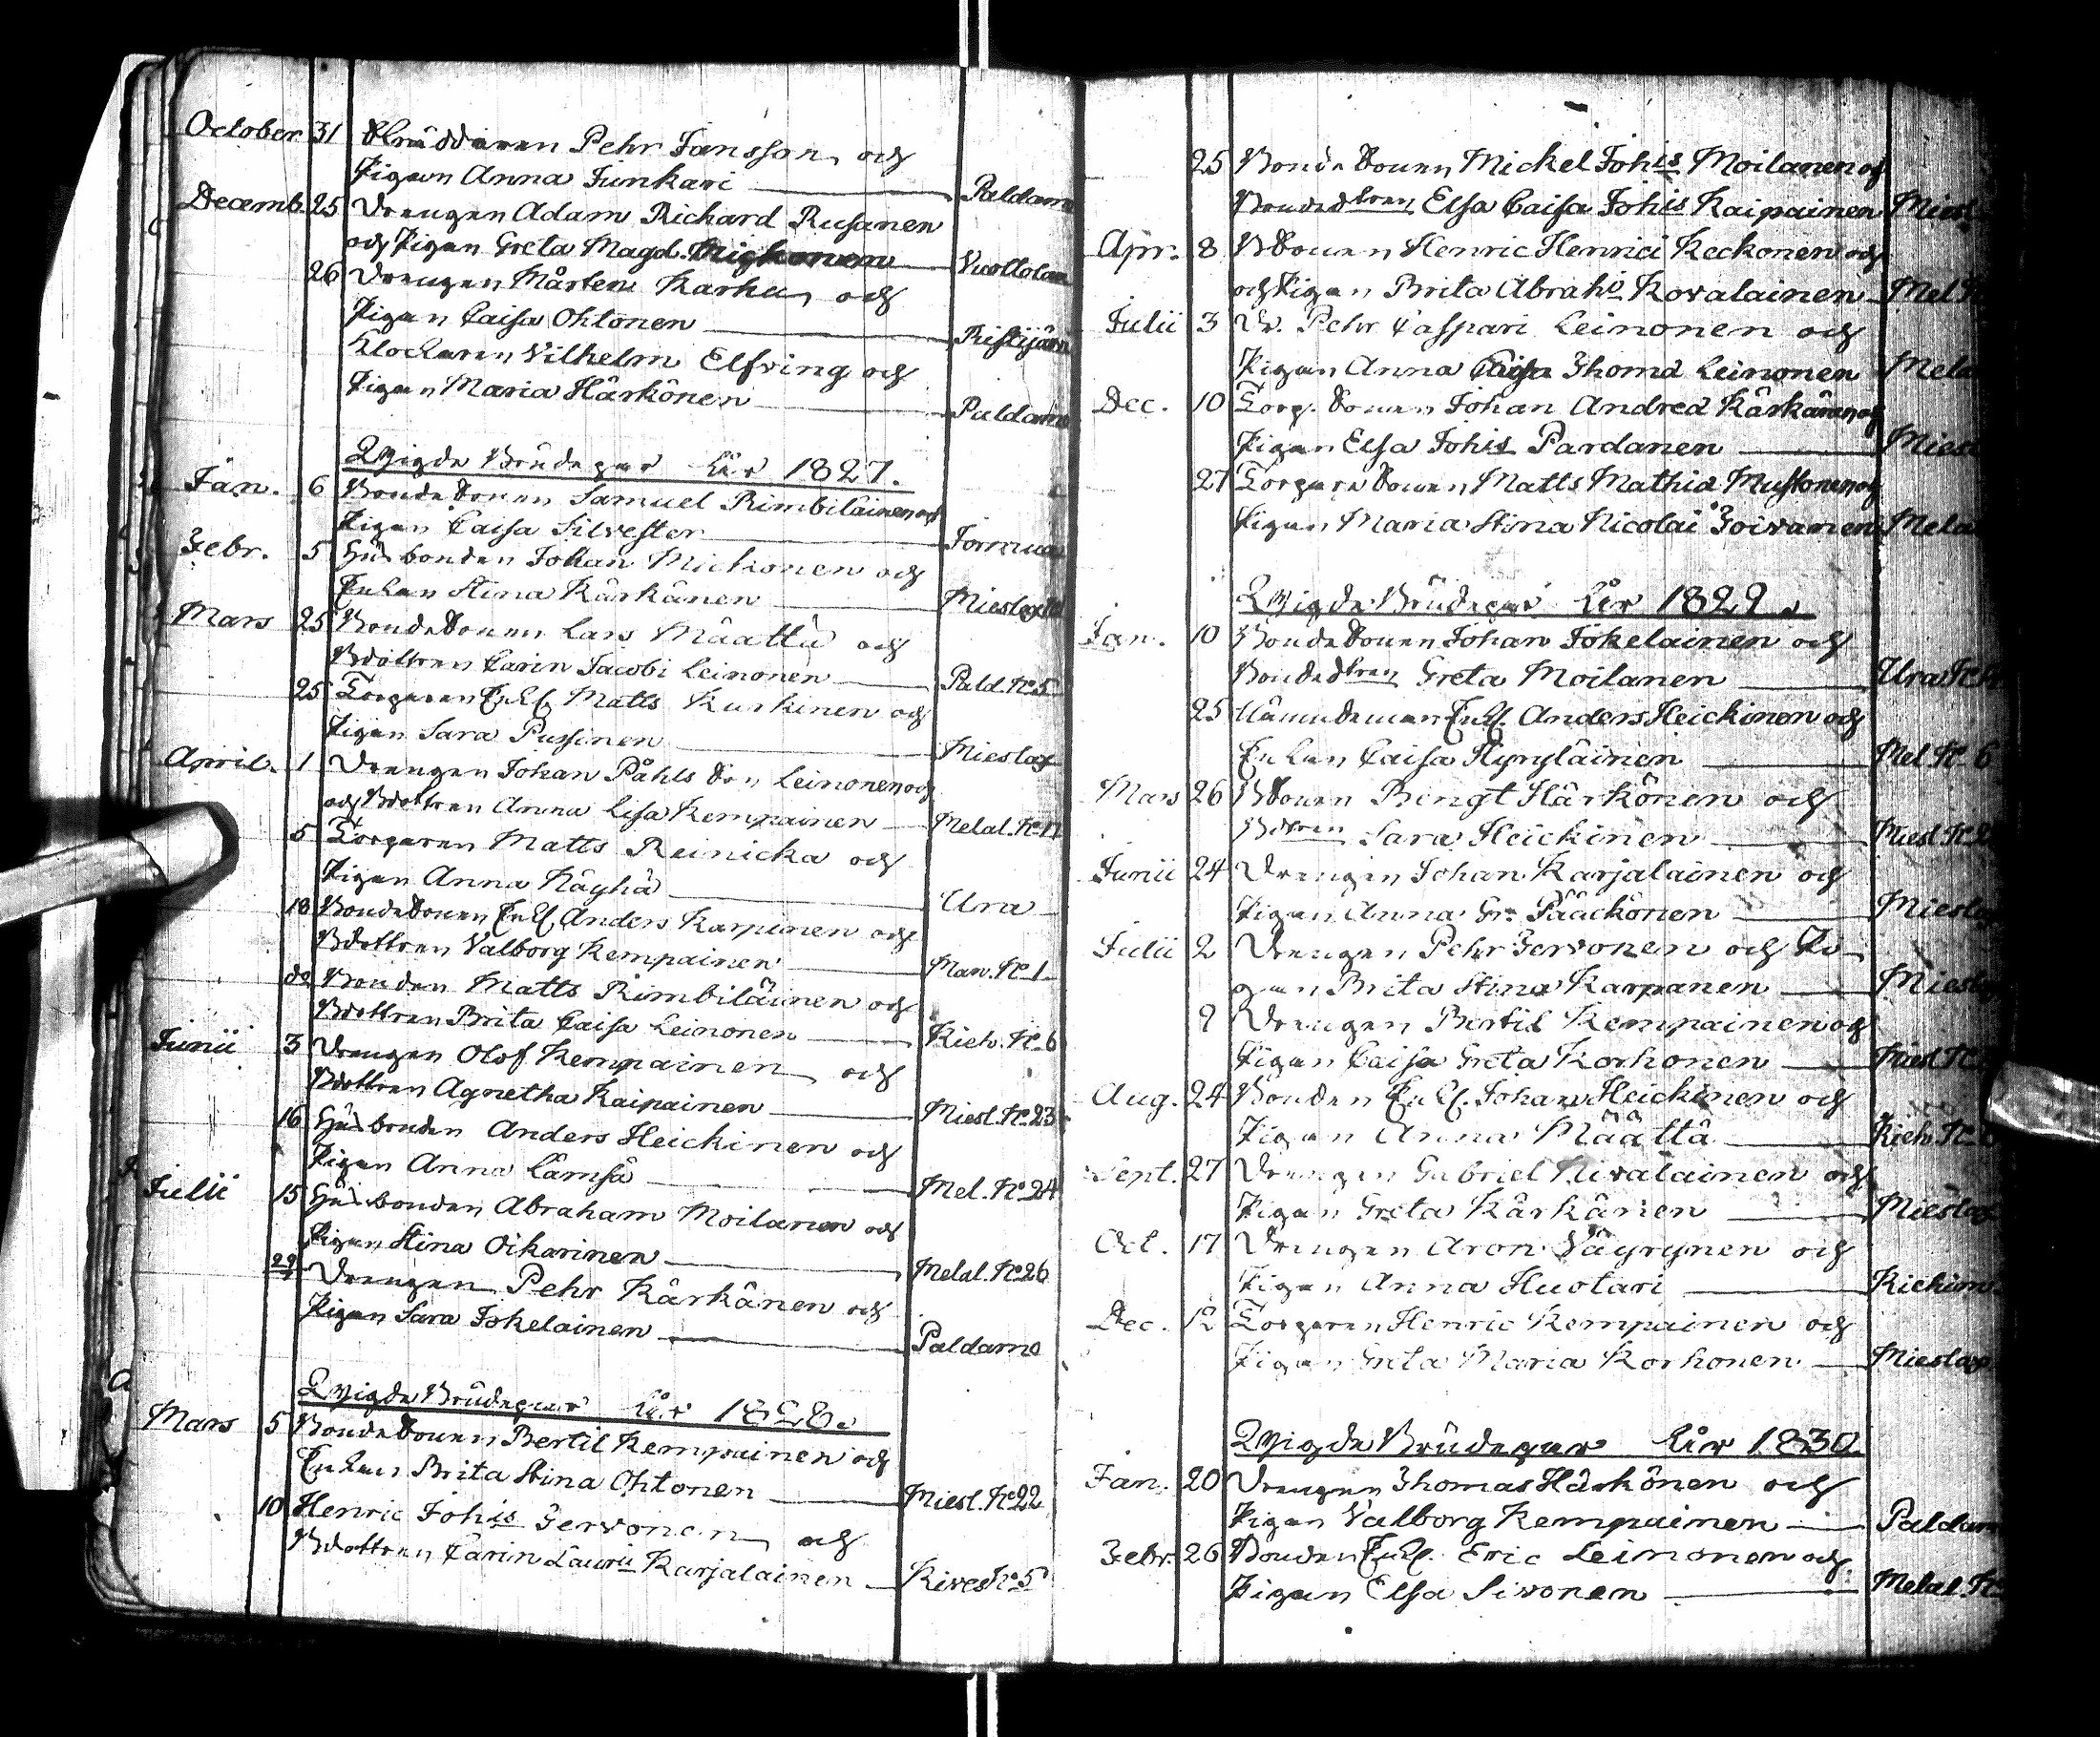 October. 31 Skräddaren Pehr Jansson och
Pigan Anna Junkari Paldamo
Decemb. 25 Drengen Adam Richard Rusanen
och Pigan Greta Magd. Vuottolax
26 Drengen Mårten Karhu och
Pigan Caisa Ohtonen Ristijärvi
Klockaren Vilhelm Elfving och
Pigan Maria Härkönen Paldamo
Wigde Brüdepar År 1827.
Jan. 6 BondeSonen Samuel Rimbiläinen och
Pigan Caisa Silvester Jormua
Febr. 5 Husbonden Johan Michonen och
Enkan Stina Kärkänen Mieslax
Mars 25 BondeSonen Lars Määttä och
Bdottren Carin Jacobi Leinonen Pald. No 5
25 Torparen Enkl. Matts Kurkinen och
Pigan Sara Pussinen Mieslax
April. 1 Drengen Johan Påhls Son Leinonen och
och Bdottren Anna Lisa Kempainen Melal. No 17
5 Torparen Matts Reinicka och
Pigan Anna Käyhä Ura
18 BondeSonen Enkl Anders Karpinen och
Bdottren Valborg Kempainen Man. No 1
do Bonden Matts Rimbiläinen och
Bdottren Brita Caisa Leinonen Kieh. No 6
Junii 3 Drengen Olof Kempainen och
Bdottren Agnetha Kaipainen Miesl. No 23
16 Husbonden Anders Heickinen och
Pigan Anna Lämsä Mel. No 24
Julii 15 Husbonden Abraham Moilanen och
Pigan Stina Oikarinen Melal. No 26
29 Drengen Pehr Kärkänen och
Pigan Sara Jokelainen Paldamo
Wigde Brüdepar År 1828.
Mars 5 BondeSonen Bertil Kempainen och
Enkan Brita Stina Ohtonen Miesl. No 22
10 Henric Johis Tervonen och
Bdottren Carin Laurii Karjalainen Kives No 5
25 BondeSonen Mickel Johis Moilanen och
Bondedtren Elsa Caisa Johis Kaipainen Miesl
Apr. 8 BSonen Henric Henrici Keckonen och
och Pigan Brita Abrahi Kovalainen Mel
Julii 3 Dr. Pehr Caspari Leinonen och
Pigan Anna Caisa Thomæ Leinonen Mela
Dec. 10 Torp. Sonen Johan Andreæ Kärkänen och
Pigan Elsa Johis Pardanen Miesl
27 Torpare Sonen Matts Mathiæ Mustonen och
Pigan Maria Stina Nicolai Toivanen Mela
Wigde Brüdepar År 1829.
Jan. 10 BondeSonen Johan Jokelainen och
Bondedtren Greta Moilanen Ura No
25 Nämndeman Enkl. Anders Heickinen och
Enkan Caisa Hyryläinen Mel No 6
Mars 26 BSonen Bengt Härkönen och
Bdtren Sara Heickinen Miesl No 2
Junii 24 Drengen Johan Karjalainen och
Pigan Anna Gr. Pääckönen Mieslax
Julii 2 Drengen Pehr Tervonen och Pi-
gan Brita Stina Karpanen Mieslax
9 Drengen Bertil Kempainen och
Pigan Caisa Greta Korhonen Miesl. No
Aug. 24 Bonden Enkl. Johan Heickinen och
Pigan Anna Määttä Kieh. No
Sept. 27 Drengen Gabriel Kivalainen och
Pigan Greta Kärkänen Mieslax
Oct. 17 Drengen Aron Väyrynen och
Pigan Anna Huotari Kiehim
Dec. 12 Torparen Henric Kempainen och
Pigan Greta Maria Korhonen Mieslax
Wigde Brüdepar År 1830
Jan. 20 Drengen Thomas Härkönen och
Pigan Valborg Kempainen Paldam
Febr. 26 Bonden Enkl. Eric Leinonen och
Pigan Elsa Sivonen Melal. No